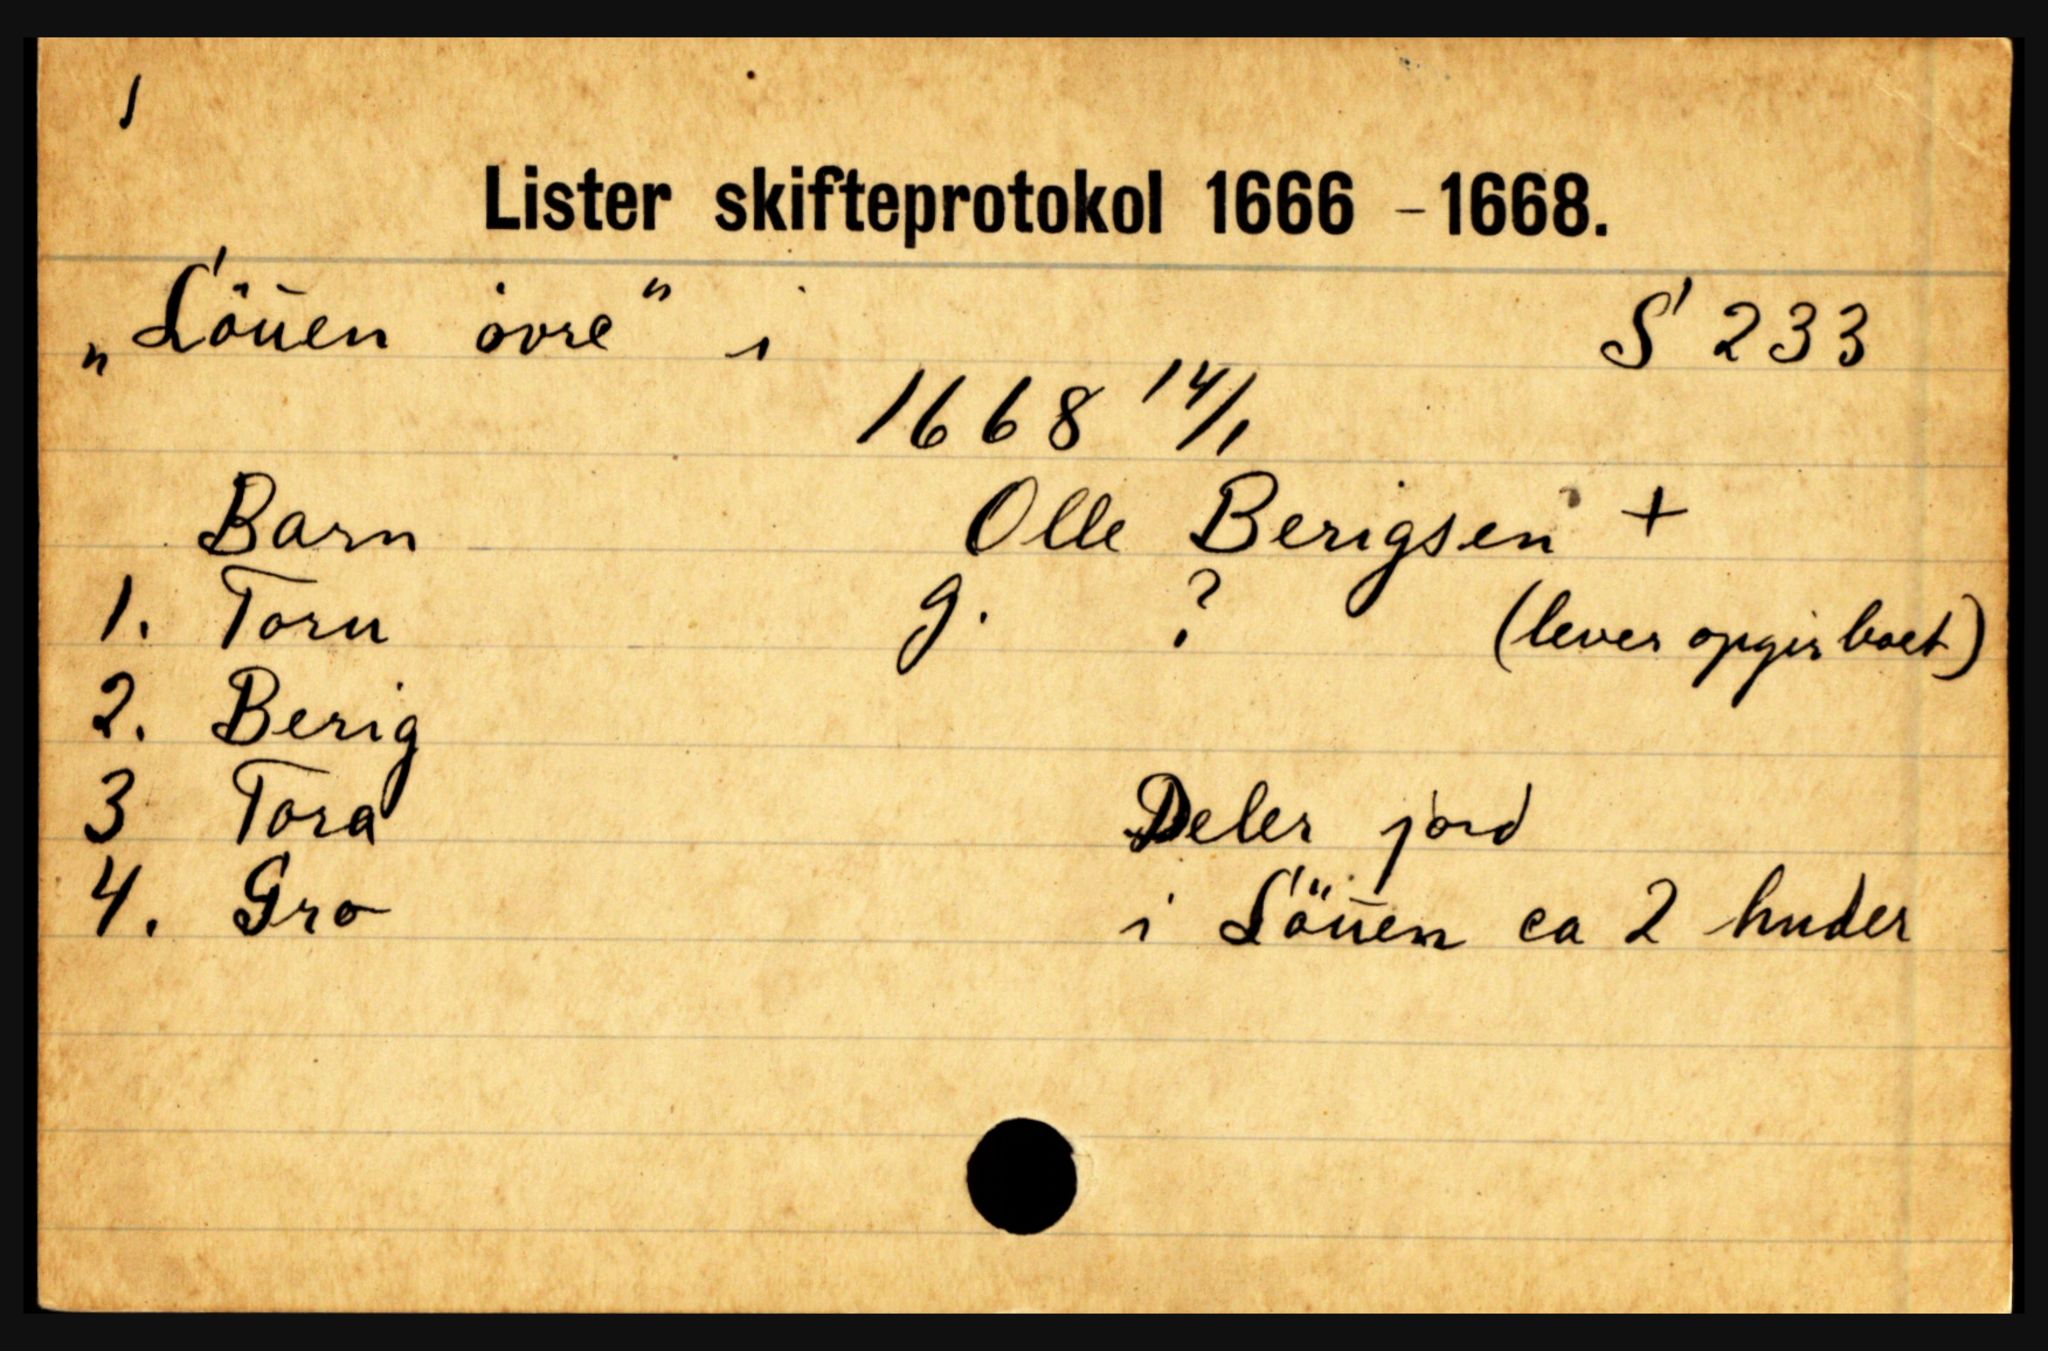 1
Lister skifteprotokol 1666 - 1668.
„Löūen övre" i S 233
1668 14/1
Barn Olle Berigsen +
1. Toru g. ? (lever opgir boet)
2. Berig
3 Tora Deler jord
4. Gro i Löūen ca 2 huder